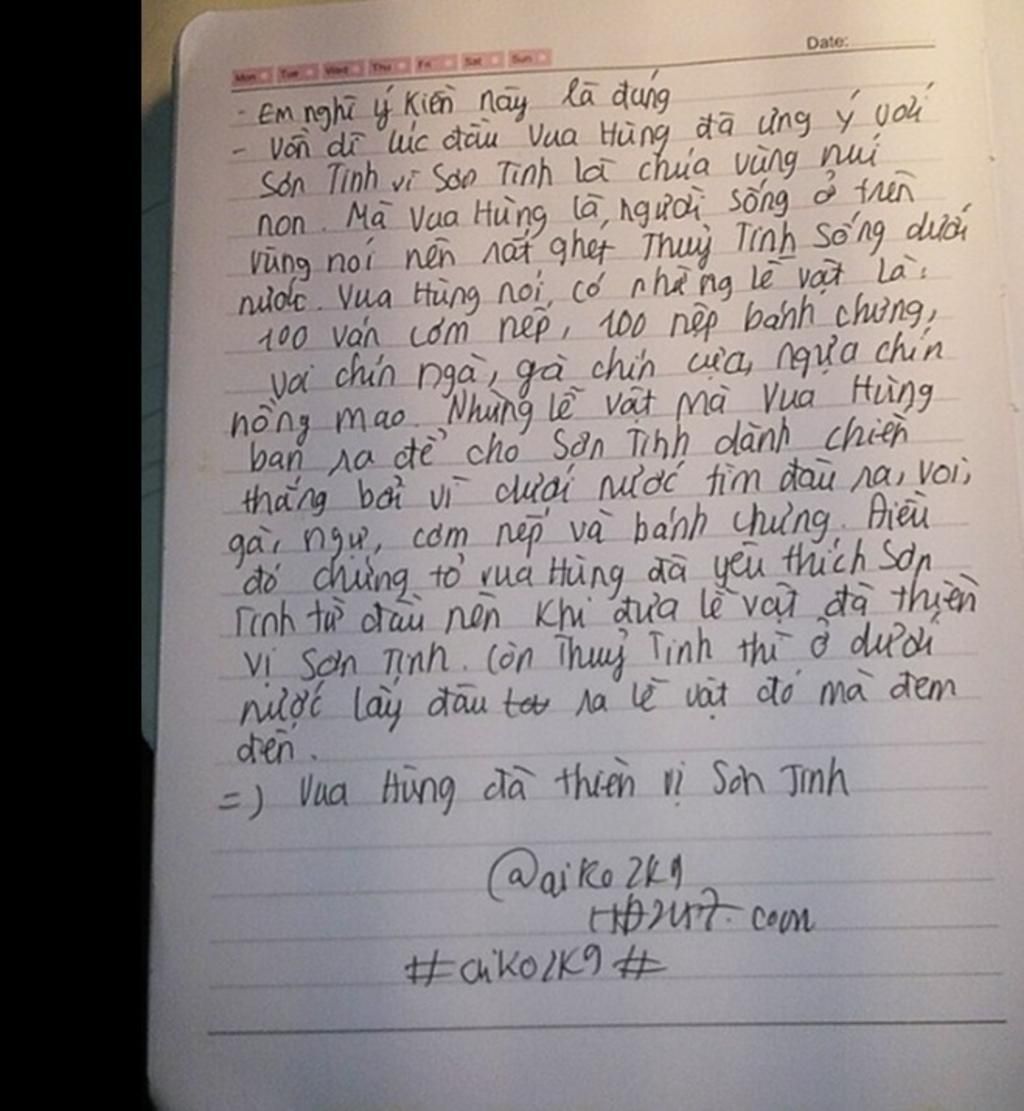 Date:
Mon Tue Wed Thu Fri Sat Sun
- Em nghĩ ý kiến này là đúng
- Vốn dĩ lúc đầu Vua Hùng đã ưng ý với
Sơn Tinh vì Sơn Tinh là chúa vùng núi
non. Mà Vua Hùng là người sống ở trên
vùng nói nên rất ghét Thuỷ Tinh sống dưới
nước. Vua Hùng nói, có những lễ vật là:
100 ván cơm nếp, 100 nệp bánh chưng,
voi chín ngà, gà chín cựa, ngựa chín
hồng mao. Những lễ vật mà Vua Hùng
ban ra để cho Sơn Tinh dành chiến
thắng bởi vì dưới nước tìm đâu ra, voi,
gà, ngự, cơm nếp và bánh chưng. Điều
đó chứng tỏ vua Hùng đã yêu thích Sơn
Tinh từ đầu nên khi đưa lễ vật đã thiên
vị Sơn Tinh. Còn Thuỷ Tinh thì ở dưới
nước lấy đâu ra lễ vật đó mà đem
đến.
=) Vua Hùng đã thiên vị Sơn Tinh
@aiko2k9
H247.com
#aiko2k9#